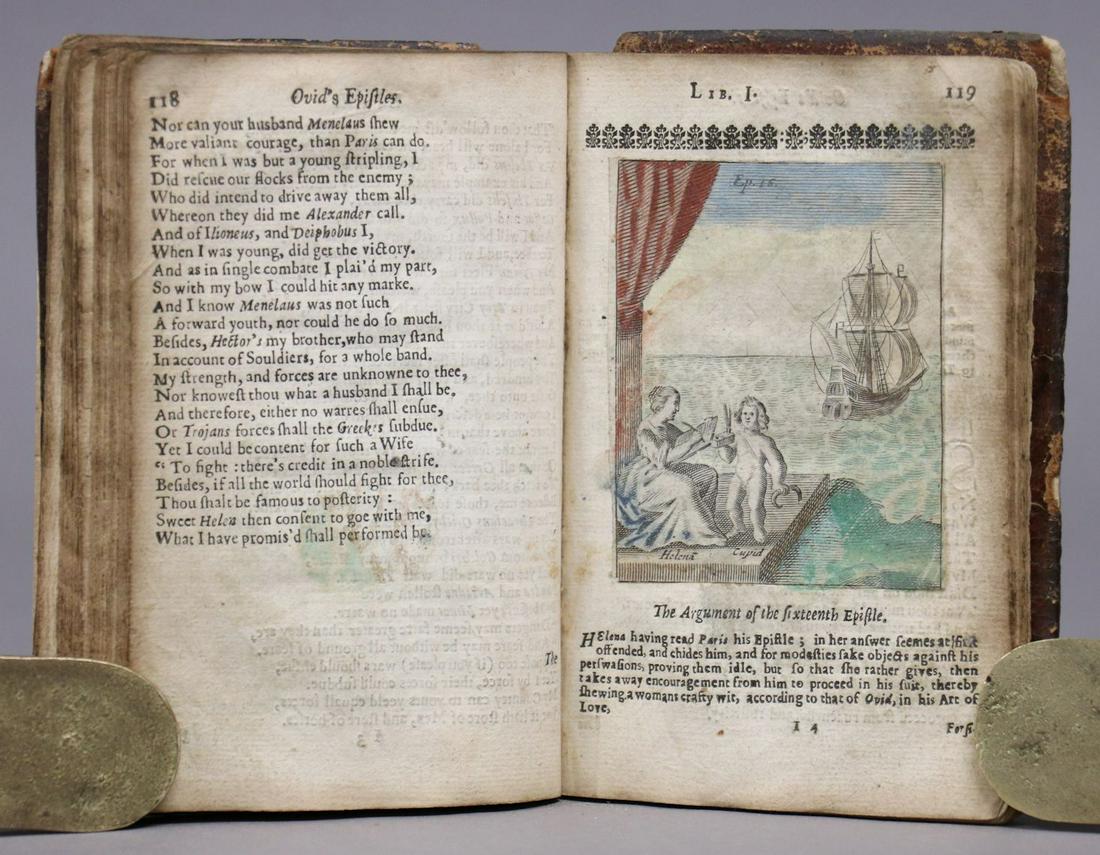 118 Ovid's Epistles.
Nor can your husband Menelaus shew
More valiant courage, than Paris can do.
For when I was but a young ſtripling, I
Did reſcue our flocks from the enemy ;
Who did intend to drive away them all,
Whereon they did me Alexander call.
And of Ilioneus, and Deiphobus I,
When I was young, did get the victory.
And as in ſingle combate I plai'd my part,
So with my bow I could hit any marke.
And I know Menelaus was not ſuch
A forward youth, nor could he do ſo much.
Beſides, Hector's my brother, who may ſtand
In account of Souldiers, for a whole band.
My ſtrength, and forces are unknowne to thee,
Nor knoweſt thou what a husband I ſhall be.
And therefore, either no warres ſhall enſue,
Or Trojans forces ſhall the Greekes ſubdue.
Yet I could be content for ſuch a Wife
“ To fight : there's credit in a noble ſtrife.
Beſides, if all the world ſhould fight for thee,
Thou ſhalt be famous to poſterity :
Sweet Helen then conſent to goe with me,
What I have promis'd ſhall performed be.
The
LIB. I. 119
Ep. 16.
Helena Cupid
The Argument of the ſixteenth Epiſtle.
HElena having read Paris his Epiſtle ; in her answer ſeemes at firſt
offended, and chides him, and for modeſties ſake objects againſt his
perſwaſions, proving them idle, but ſo that ſhe rather gives, then
takes away encouragement from him to proceed in his ſuit, thereby
ſhewing a womans crafty wit, according to that of Ovid, in his Art of
Love,
I 4 Forſi